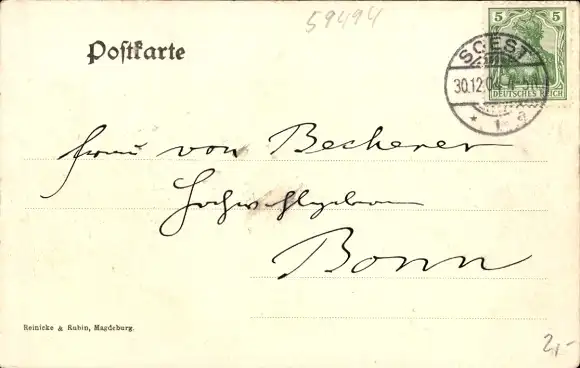 59494
Postkarte
5 5
DEUTSCHES REICH
SOEST
30.12.0
* 1 a
Frau von Becherer
Hochwohlgeboren
Bonn
Reinicke & Rubin, Magdeburg.
2,-